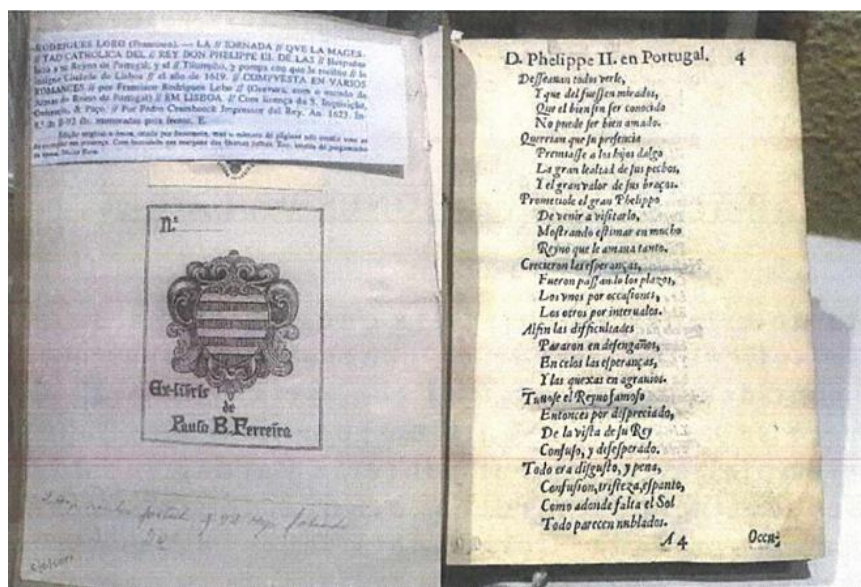 RODRIGUES LOBO (Francisco). — LA // IORNADA // QVE LA MAGES-
// TAD CATHOLICA DEL // REY DON PHELIPPE III. DE LAS // Hespañas
hizo a su Reyno de Portugal; y el // Triumpho, y pompa con que le recibio // la
insigne Ciudade de Lisboa // el año de 1619. // COMPVESTA EN VARIOS
ROMANCES // por Francisco Rodrigues Lobo // (Gravura, com o escudo de
Armas do Reino de Portugal) // EM LISBOA. // Com licença da S. Inquisição,
Ordinario, & Paço. // Por Pedro Craesbeeck Impressor del Rey. An. 1623. In-
n.º
Ex-libris
de
Paulo B. Ferreira
D. Phelippe II. en Portugal. 4
Desseauan todos verle,
Y que del fuessen mirados,
Que el bien sin ser conocido
No puede ser bien amado.
Querrian que su presencia
Premiasse a los hijos dalgo
La gran lealtad de sus pechos,
Y el gran valor de sus braços.
Prometiole el gran Phelippo
De venir a visitarlo,
Mostrando estimar en mucho
Reyno que le amaua tanto.
Crecieron las esperanças,
Fueron passando los plazos,
Los vnos por occasiones,
Los otros por interualos.
Alfin las difficultades
Pararon en desengaños,
En celos las esperanças,
Y las quexas en agrauios.
Tuuose el Reyno famoso
Entonces por despreciado,
De la vista de su Rey
Confuso, y desesperado.
Todo era disgusto, y pena,
Confusion, tristeza, espanto,
Como adonde falta el Sol
Todo parecen nublados.
A 4 Occu-